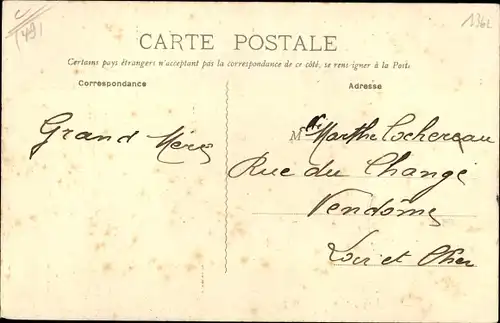 CARTE POSTALE
Certains pays étrangers n'acceptant pas la correspondance de ce côté, se renseigner à la Poste
Correspondance
Adresse
Grand Mère
Mlle Marthe Cochereau
Rue du Change
Vendôme
Loir et Cher